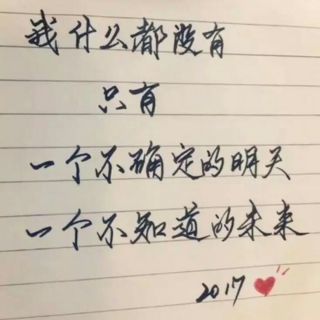 我什么都没有
只有
一个不确定的明天
一个不知道的未来
2017